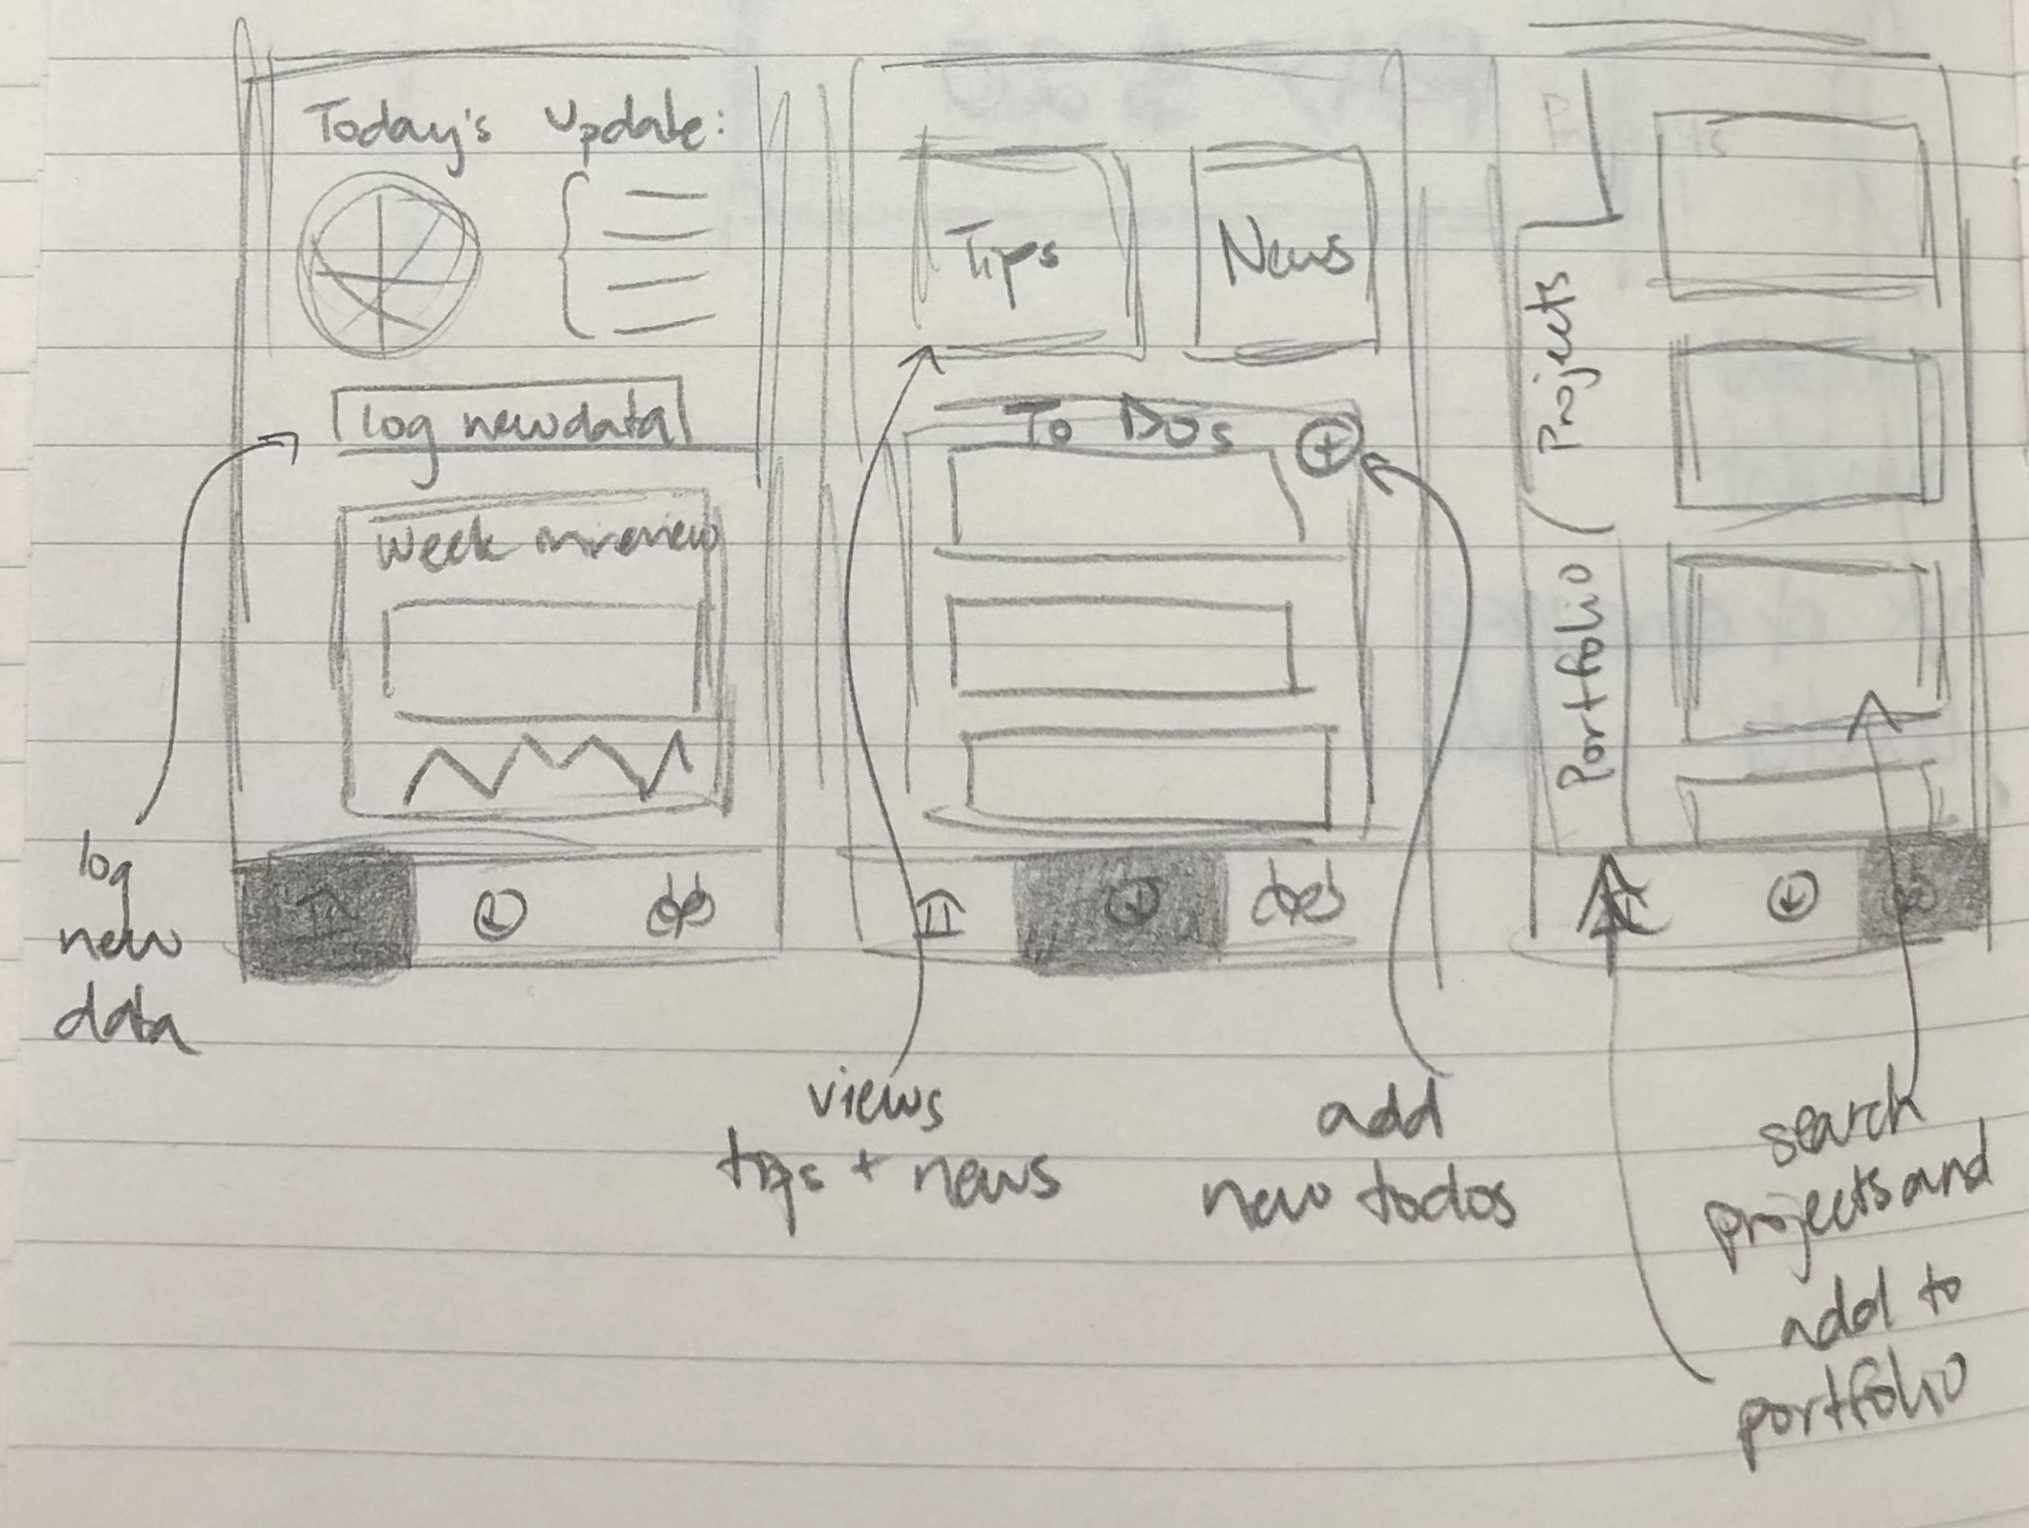 Today's Update:
log new data
Week overview
log
new
data
Tips
News
To Dos
views
tips + news
add
new todos
Projects
Portfolio
search
projects and
add to
portfolio